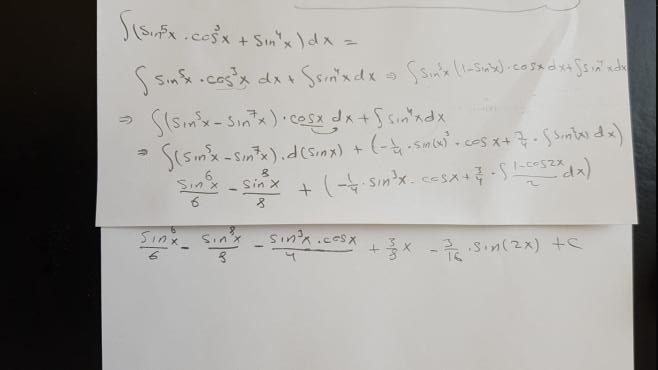 ∫(sin⁵x · cos³x + sin⁴x) dx =
∫ sin⁵x · cos³x dx + ∫ sin⁴x dx ⇒ ∫ sin⁵x (1 - sin²x) · cosx dx + ∫ sin⁴x dx
⇒ ∫(sin⁵x - sin⁷x) · cosx dx + ∫ sin⁴x dx
⇒ ∫(sin⁵x - sin⁷x) . d(sinx) + (-1/4 · sin(x)³ · cosx + 3/4 · ∫ sin²(x) dx)
sin⁶x/6 - sin⁸x/8 + (-1/4 · sin³x · cosx + 3/4 · ∫ (1-cos2x)/2 dx)
sin⁶x/6 - sin⁸x/8 - (sin³x · cosx)/4 + 3/8 x - 3/16 · sin(2x) + C